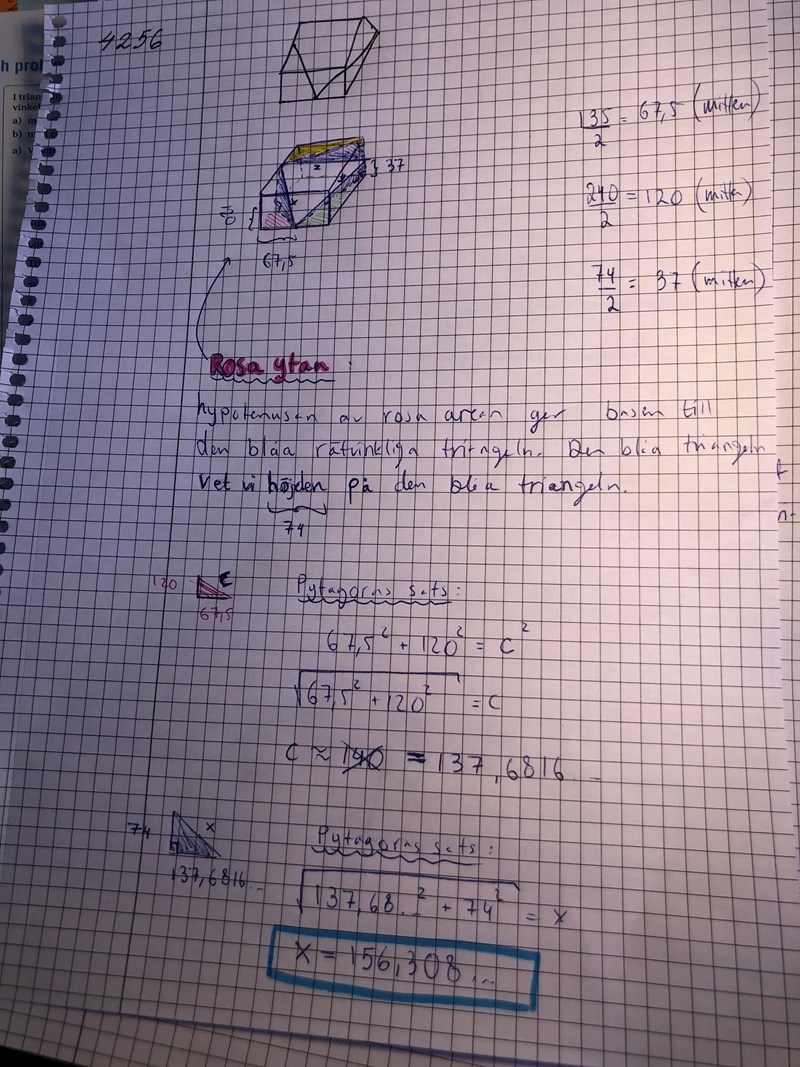 4256
h prol
I trian
vinkel
a) m
b) m
a) V
135/2 = 67,5 (mitten)
37
240/2 = 120 (mitten)
67,5
74/2 = 37 (mitten)
Rosa ytan :
hypotenusan av rosa arean ger basen till
den blåa rätvinkliga triangeln. Den blåa triangeln
Vet vi höjden på den blåa triangeln.
74
120 C
67,5
Pytagoras sats:
67,5² + 120² = C²
√67,5² + 120² = C
C ≈ 140 = 137,6816...
74 x
137,6816...
Pytagoras sats:
√137,68...² + 74² = x
x = 156,308...